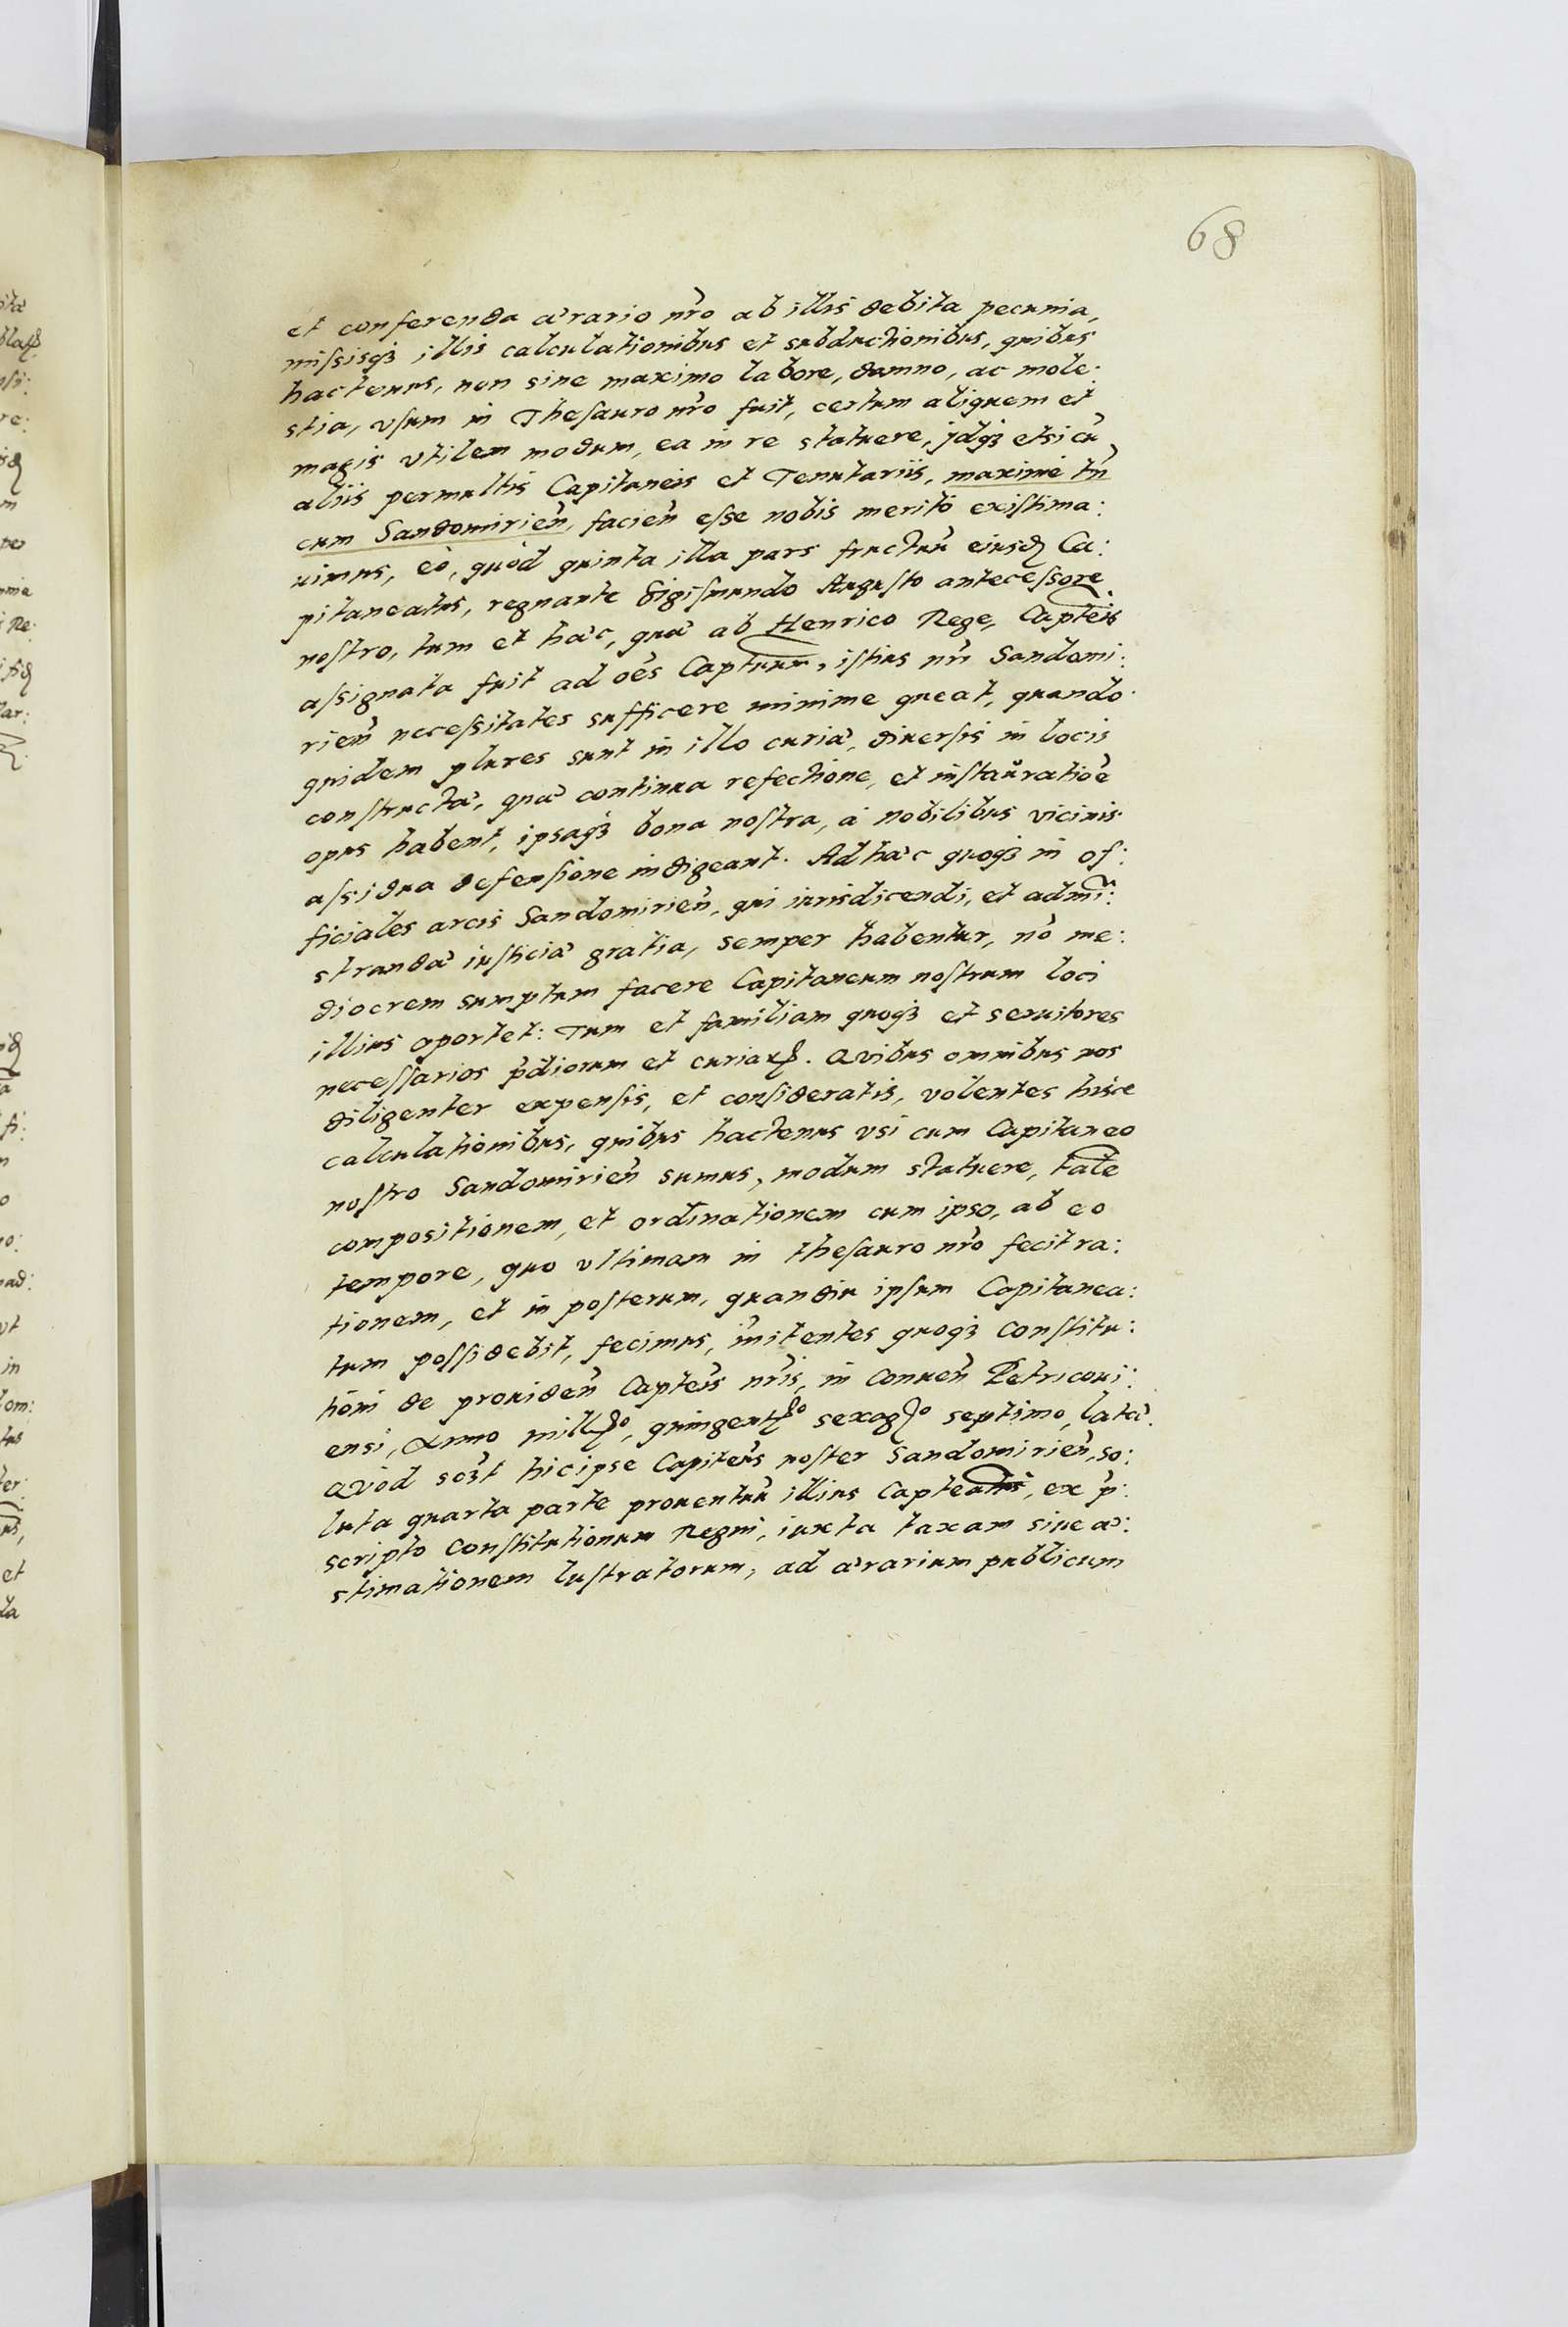 68
et conferenda ærario nr̃o ab illis debita pecunia,
missisqȝ illis calculationibus et subductionibus, quibus
hactenus, non sine maximo labore, damno, ac mole:
stia, vsum in Thesauro nr̃o fuit, certum aliquem et
magis vtilem modum, ea in re statuere, jdqȝ etsi cũ
aliis permultis Capitaneis et Tenutariis, maximè tñ
cum Sandomirieñ, facieñ esse nobis meritò existima:
uimus, eò, quòd quinta illa pars fructuũ eiusd Ca:
pitaneatus, regnante Sigismundo Augusto antecessore
nostro, tum et hæc, quæ ab Henrico Rege, Capteis
assignata fuit ad oẽs Captuum, istius nr̃i Sandomi:
rieñ necessitates sufficere minime queat, quando
quidem plures sunt in illo curiæ, diuersis in locis
constructæ, quæ continua refectione, et instauratiõe
opus habent, ipsaqȝ bona nostra, à nobilibus vicinis
assidua defensione indigeant. Ad hæc quoqȝ in of:
ficiales arcis Sandomirieñ, qui iurisdicendi, et admĩ:
strandæ iusticiæ gratia, semper habentur, nõ me:
diocrem sumptum facere Capitaneum nostrum loci
illius oportet: Tum et familiam quoqȝ et seruitores
necessarios p̃diorum et curiaꝝ. Quibus omnibus nos
diligenter expensis, et consideratis, volentes hisce
calculationibus, quibus hactenus vsi cum Capitaneo
nostro Sandomirieñ sumus, modum statuere, tale
compositionem, et ordinationem cum ipso, ab eo
tempore, quo vltimam in thesauro nr̃o fecit ra:
tionem, et in posterum, quandiu ipsum Capitanea:
tum possidebit, fecimus, ĩnitentes quoqȝ Constitu:
tioni de prouideñ Capteis nr̃is, in Conueñ Petricoui:
ensi, Anno millꝭo, quingentꝭo sexagꝭo septimo, latæ.
Quòd scȝt hic ipse Capiteũs noster Sandomirieñ, so:
luta quarta parte prouentuũ illius Capteatus, ex p̃:
scripto Constitutionum Regni, iuxta taxam siue æ:
stimationem lustratorum, ad ærarium publicum